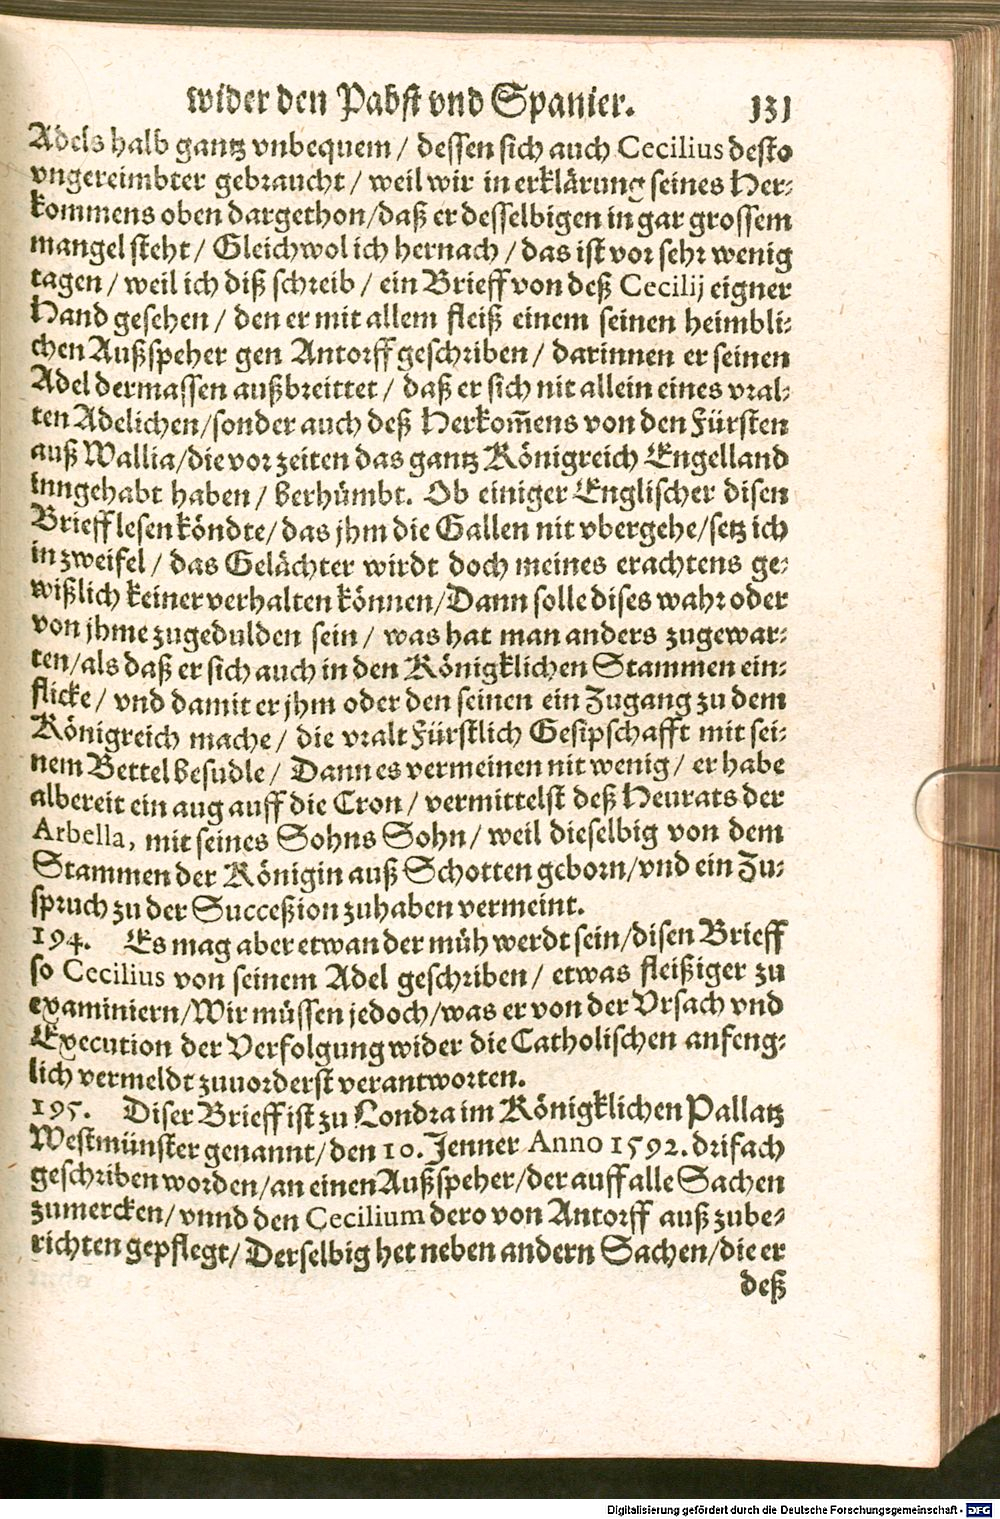 wider den Pabst vnd Spanier. 131
Adels halb gantz vnbequem / dessen sich auch Cecilius desto
vngereimbter gebraucht / weil wir in erklärung seines Her-
kommens oben dargethon/daß er desselbigen in gar grossem
mangel steht / Gleichwol ich hernach / das ist vor sehr wenig
tagen / weil ich diß schreib / ein Brieff von deß Cecilij eigner
Hand gesehen / den er mit allem fleiß einem seinen heimbli-
chen Außspeher gen Antorff geschriben / darinnen er seinen
Adel dermassen außbreittet / daß er sich nit allein eines vral-
ten Adelichen/sonder auch deß Herkom̃ens von den Fürsten
auß Wallia/die vor zeiten das gantz Königreich Engelland
inngehabt haben / berhümbt. Ob einiger Englischer disen
Brieff lesen köndte/das jhm die Gallen nit vbergehe/setz ich
in zweifel / das Gelächter wirdt doch meines erachtens ge-
wißlich keiner verhalten können/Dann solle dises wahr oder
von jhme zugedulden sein / was hat man anders zugewar-
ten/als daß er sich auch in den Königklichen Stammen ein-
flicke / vnd damit er jhm oder den seinen ein Zugang zu dem
Königreich mache / die vralt Fürstlich Gesipschafft mit sei-
nem Bettel besudle / Dann es vermeinen nit wenig / er habe
albereit ein aug auff die Cron / vermittelst deß Heurats der
Arbella, mit seines Sohns Sohn / weil dieselbig von dem
Stammen der Königin auß Schotten geborn/vnd ein Zu-
spruch zu der Succeßion zuhaben vermeint.
194. Es mag aber etwan der müh werdt sein/disen Brieff
so Cecilius von seinem Adel geschriben / etwas fleißiger zu
examiniern/Wir müssen jedoch/was er von der Vrsach vnd
Execution der Verfolgung wider die Catholischen anfeng-
lich vermeldt zuuorderst verantworten.
195. Diser Brieff ist zu Londra im Königklichen Pallatz
Westmünster genannt/den 10. Jenner Anno 1592. drifach
geschriben worden/an einen Außspeher/der auff alle Sachen
zumercken/vnnd den Cecilium dero von Antorff auß zube-
richten gepflegt/Derselbig het neben andern Sachen/die er
deß
Digitalisierung gefördert durch die Deutsche Forschungsgemeinschaft - DFG